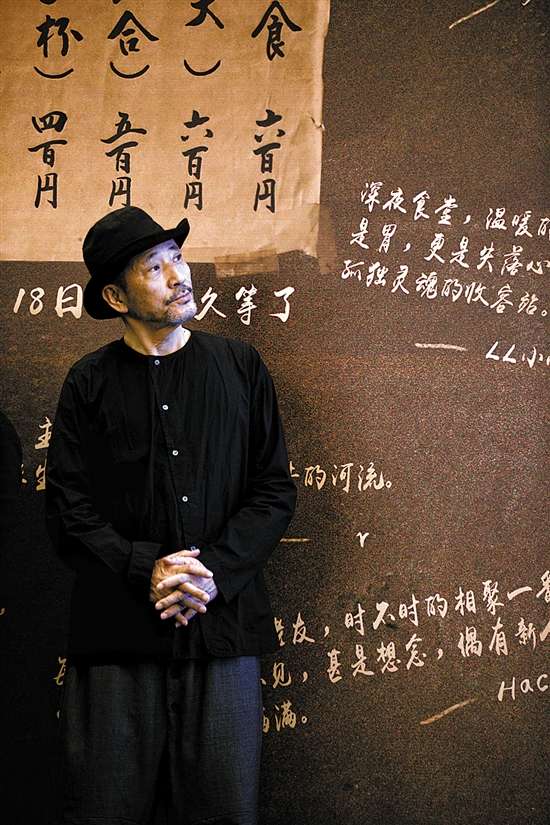 食
六百円
大
）
六百円
合
）
五百円
杯
）
四百円
深夜食堂，温暖的
是胃，更是失落心
孤独灵魂的收容站。
—— LL小
18日
久等了
主
的河流。
老友，时不时的相聚一
见，甚是想念，偶有新
—— Hac
满。